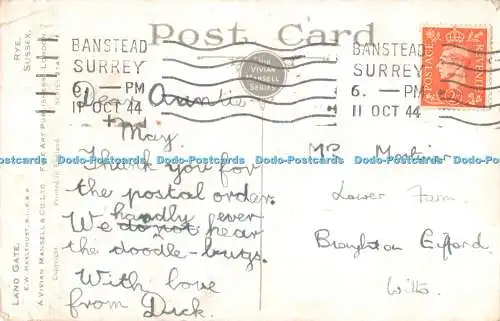 Post Card
BANSTEAD
SURREY
6 — PM
11 OCT 44
BANSTEAD
SURREY
6. — PM
11 OCT 44
THE
VIVIAN
MANSELL
SERIES
POSTAGE
REVENUE
Dear Auntie
+ May.
Thank you for
the postal order.
We do not hear
hardly ever
the doodle-bugs.
With love
from Dick.
Lower Farm
Broughton Gifford
Wilts.
RYE,
SUSSEX.
LAND GATE.
A VIVIAN MANSELL & CO. LTD. FINE ART PUBLISHERS. LONDON.
Dodo-Postcards Dodo-Postcards Dodo-Postcards Dodo-Postcards Dodo-Postcards Dodo-Postcards